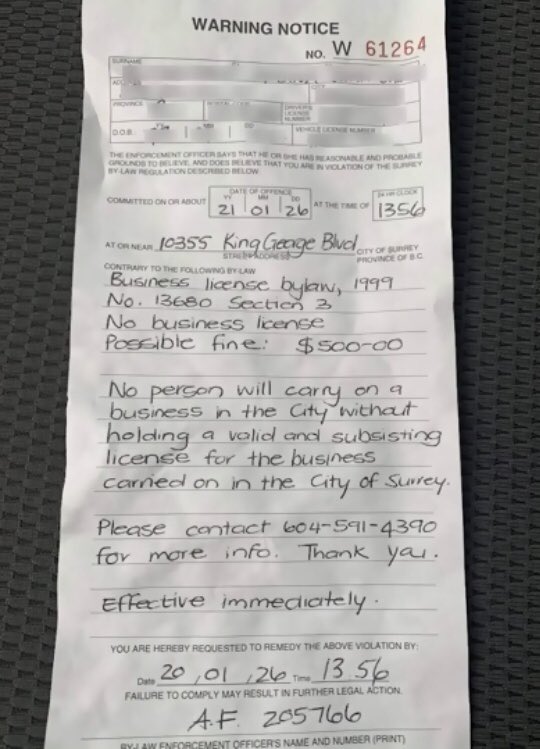 WARNING NOTICE
NO. W 61264
SURNAME
CITY
PROVINCE
DRIVER'S LICENSE NUMBER
D.O.B. MM DD VEHICLE LICENSE NUMBER
THE ENFORCEMENT OFFICER SAYS THAT HE OR SHE HAS REASONABLE AND PROBABLE
GROUNDS TO BELIEVE, AND DOES BELIEVE THAT YOU ARE IN VIOLATION OF THE SURREY
BY-LAW REGULATION DESCRIBED BELOW
DATE OF OFFENCE 24 HR CLOCK
YY MM DD
COMMITTED ON OR ABOUT 21 01 26 AT THE TIME OF 1356
AT OR NEAR 10355 King George Blvd CITY OF SURREY
STREET ADDRESS PROVINCE OF B.C.
CONTRARY TO THE FOLLOWING BY-LAW
Business license bylaw, 1999
No. 13680 Section 3
No business license
Possible fine: $500-00
No person will carry on a
business in the City without
holding a valid and subsisting
license for the business
carried on in the City of Surrey.
Please contact 604-591-4390
for more info. Thank you.
Effective immediately.
YOU ARE HEREBY REQUESTED TO REMEDY THE ABOVE VIOLATION BY:
Date 20,01,26 Time 13 56
FAILURE TO COMPLY MAY RESULT IN FURTHER LEGAL ACTION.
A.F. 205766
BY-LAW ENFORCEMENT OFFICER'S NAME AND NUMBER (PRINT)